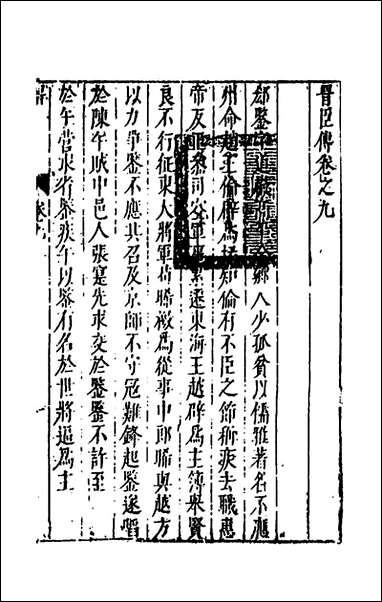 晋臣傳卷之九
郗鑒字道徽高平金鄉人少孤貧以儒雅著名不應
州命趙王倫辟為掾知倫有不臣之節稱疾去職惠
帝反正參司空軍事累遷東海王越辟為主簿舉賢
良不行征東大將軍苟晞檄為從事中郎晞與越方
以力爭鑒不應其召及京師不守寇難鋒起鑒遂陷
於陳午賊中邑人張寔先求交於鑒鑒不許至
於午營來省鑒疾午以鑒有名於世將逼為主